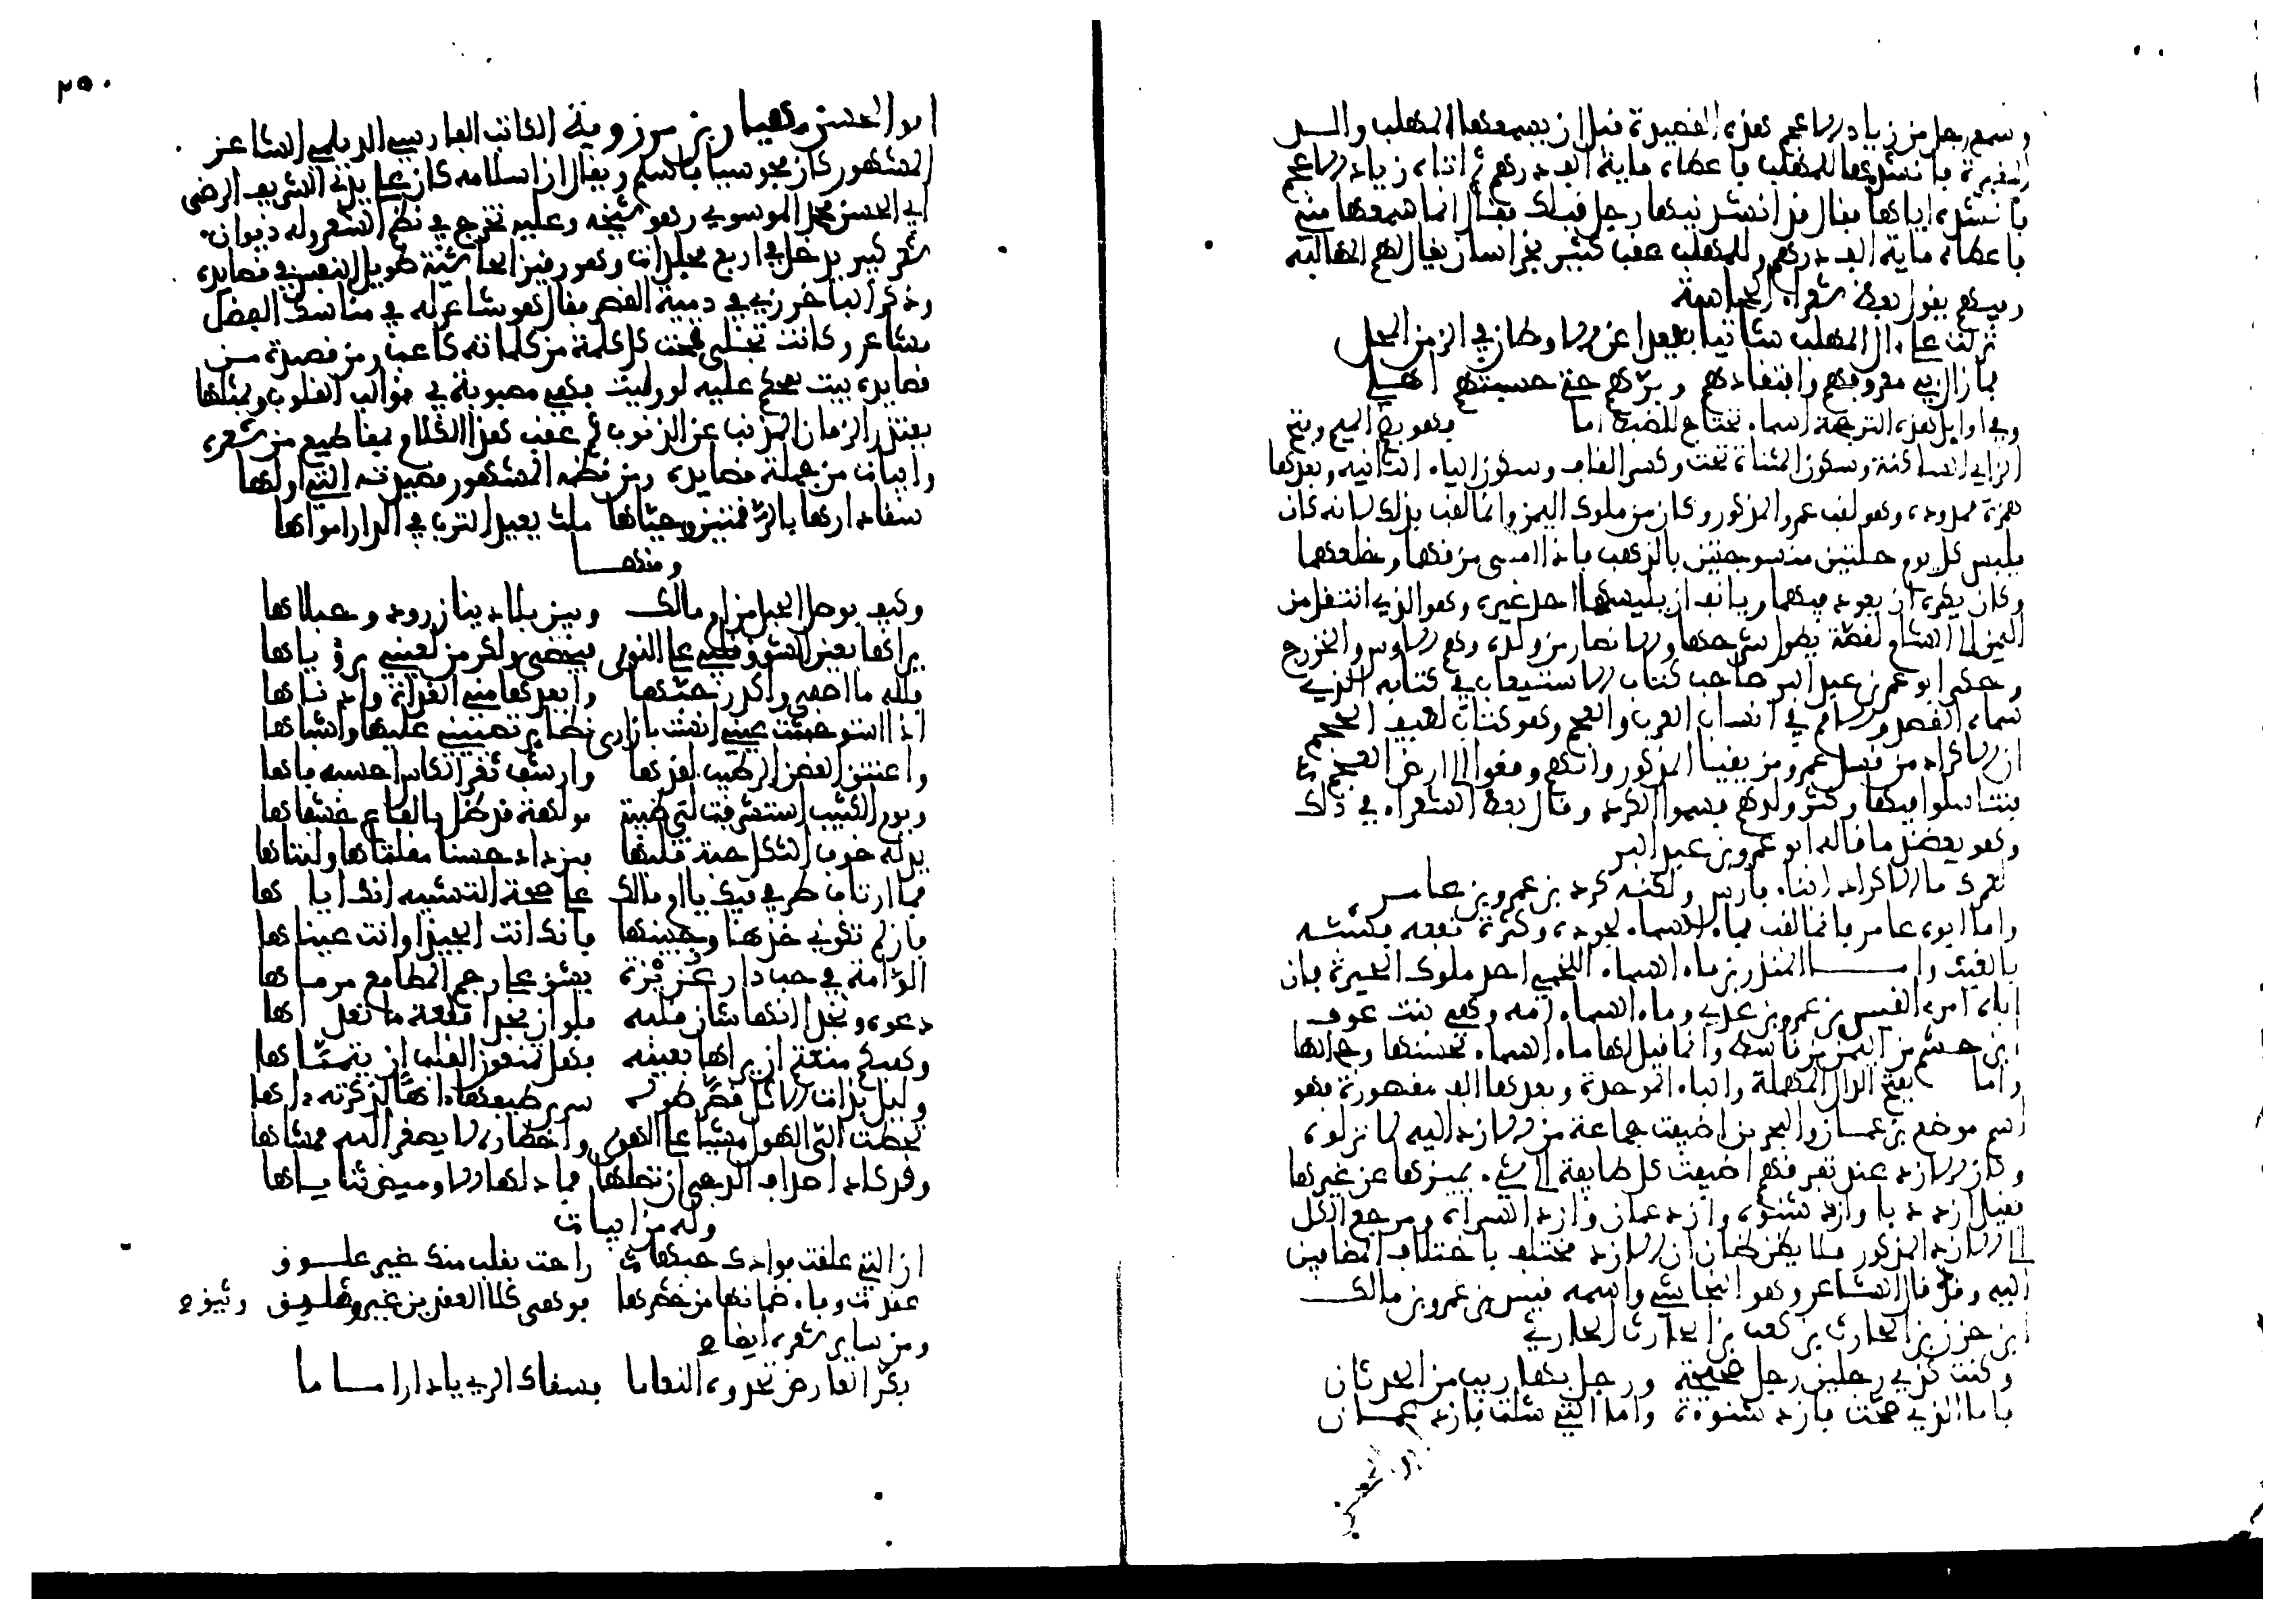 وسمع رجل من زياد الاعجم هذه القصيدة قبل ان يسمعها المهلب والد
المغيرة فانشدها للمهلب فاعطاه ماية الف درهم ثم اتاه زياد الاعجم
فانشده اياها فقال قد انشدنيها رجل قبلك فقال انما سمعها مني
فاعطاه ماية الف درهم وللمهلب عقب كثير بخراسان يقال لهم المهالبة
وفيهم يقول بعض شعراء الحماسة
نزلت على ال المهلب شاتيا بعيدا عن الاوطان في الزمن المحل
فما زال بي معروفهم وافتقادهم وبرهم حتى حسبتهم اهلي
وفي اوايل هذه الترجمة اسماء تحتاج للضبط اما وهو بضم الميم وفتح
الزاي الساكنة وسكون المثناة تحت وكسر القاف وسكون الياء الثانية وبعدها
همزة ممدودة وهو لقب عمرو المذكور وكان من ملوك اليمن وانما لقب بذلك لانه كان
يلبس كل يوم حلتين منسوجتين بالذهب فاذا امسى مزقهما وخلعهما
وكان يكره ان يعود فيهما ويانف ان يلبسهما احد غيره وهو الذي انتقل من
اليمن الى الشام لقصة يطول شرحها والانصار من ولده وهم الاوس والخزرج
وحكى ابو عمر بن عبد البر صاحب كتاب الاستيعاب في كتابه الذي
سماه القصد والامم في انساب العرب والعجم وهو كتاب لطيف الحجم
ان الاكراد من نسل عمرو مزيقيا المذكور وانهم وقعوا الى ارض العجم
فتناسلوا فيها وكثر ولدهم فسموا الكرد وقال بعض الشعراء في ذلك
وهو يعضد ما قاله ابو عمرو بن عبد البر
لعمرك ما الاكراد ابناء فارس ولكنه كرد بن عمرو بن عامر
واما ابوه عامر فانما لقب بماء السماء لجوده وكثرة نفعه فشبه
بالغيث واما المنذر بن ماء السماء اللخمي احد ملوك الحيرة فان
اباه امرء القيس بن عمرو بن عدي وماء السماء امه وهي بنت عوف
ابن جشم من النمر بن قاسط وانما قيل لها ماء السماء لحسنها وجمالها
واما بفتح الدال المهملة والباء الموحدة وبعدها الف مقصورة فهو
اسم موضع بين عمان والبحرين اضيفت جماعة من الازد اليه لما نزلوه
وكان الازد عند تفرقهم اضيفت كل طايفة الى شيء يميزها عن غيرها
فقيل ازد دبا وازد شنوءة وازد عمان وازد السراة ومرجع الكل
الى الازد المذكور فلا يظن ظان ان الازد مختلف باختلاف المضافين
اليه وقد قال الشاعر وهو النجاشي واسمه قيس بن عمرو بن مالك
ابن حزن بن الحارث بن كعب بن الحارث الحارثي
وكنت كذي رجلين رجل صحيحة ورجل بها ريب من الحدثان
فاما الذي صحت فازد شنوءة واما التي شلت فازد عمان
٢٥٠
ابو الحسن مهيار بن مرزويه الكاتب الفارسي الديلمي الشاعر
المشهور كان مجوسيا فاسلم ويقال ان اسلامه كان على يدي الشريف الرضى
ابي الحسن محمد الموسوي وهو شيخه وعليه تخرج في نظم الشعر وله ديوان
شعر كبير يدخل في اربع مجلدات وهو رقيق الحاشية طويل النفس في قصايده
وذكره الباخرزي في دمية القصر فقال هو شاعر له في مناسك الفضل
مشاعر وكاتب تجلى تحت كل كلمة من كلماته كاعب وما في قصيدة من
قصايده بيت يتحكم عليه لو وليت فهي مصبوبة في قوالب القلوب وبمثلها
يعتذر الزمان المذنب عن الذنوب ثم عقب هذا الكلام بمقاطيع من شعره
وابيات من جملة قصايده ومن نظمه المشهور قصيدته التي اولها
سقا دارها بالرقمتين وحياها ملث يحيل الترب في الدار امواها
ومنها
وكيف بوصل الحبل من ام مالك وبين بلادينا زرود وحبلاها
يراها بعين الشوق قلبي على النوى فيحضى ولكن من لعيني برؤياها
فلله ما اصفى واكدر حبها وابعدها مني الغداة وادناها
اذا استوحشت عيني انست بان ارى نظاير تصبيني عليها واشباها
واعتنق الغصن الرطيب لقدها وارشف ثغر الكاس احسبه فاها
ويوم الكثيب استشرفت لي ظبية مولهة قد ضل بالقاع خشفاها
يدله خوف الثكل حبة قلبها فيزداد حسنا مقلتاها وليتاها
فما ارتاب طرفي فيك يا ام مالك على صحة التشبيه انك اياها
فان لم تكوني خدها وجبينها فانك انت الجيد او انت عيناها
الوامة في حب دار عزيزة يشق على رجم المطامع مرماها
دعوه ونجدا انها شان قلبه فلو ان نجدا تلعة ما تعداها
وهبكم منعتم ان يراها بعينه فهل تمنعون القلب ان يتمناها
وليل بذات الاثل قصر طوله سرى طيفها اها لذكرته اها
تخطت الي الهول مشيا على الهوى واخطاره لا يصغر الله ممشاها
وقد كاد اسداف الدجى ان تضلها فما دلها الا وميض ثناياها
وله من ابيات
ان التي علقت فوادك حبها راحت بقلب منك غير علوق
عقدت ضمان وفائها من خصرها فوهى كلا العقدين غير وثيق
ومن ساير شعره ايضا
بكر العارض تحدوه النعاما فسقاك الري يا دار اماما